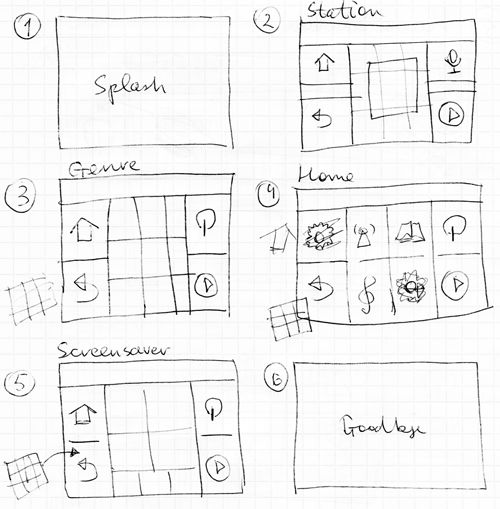 1
Splash
2
Station
3
Genre
4
Home
5
Screensaver
6
Goodbye